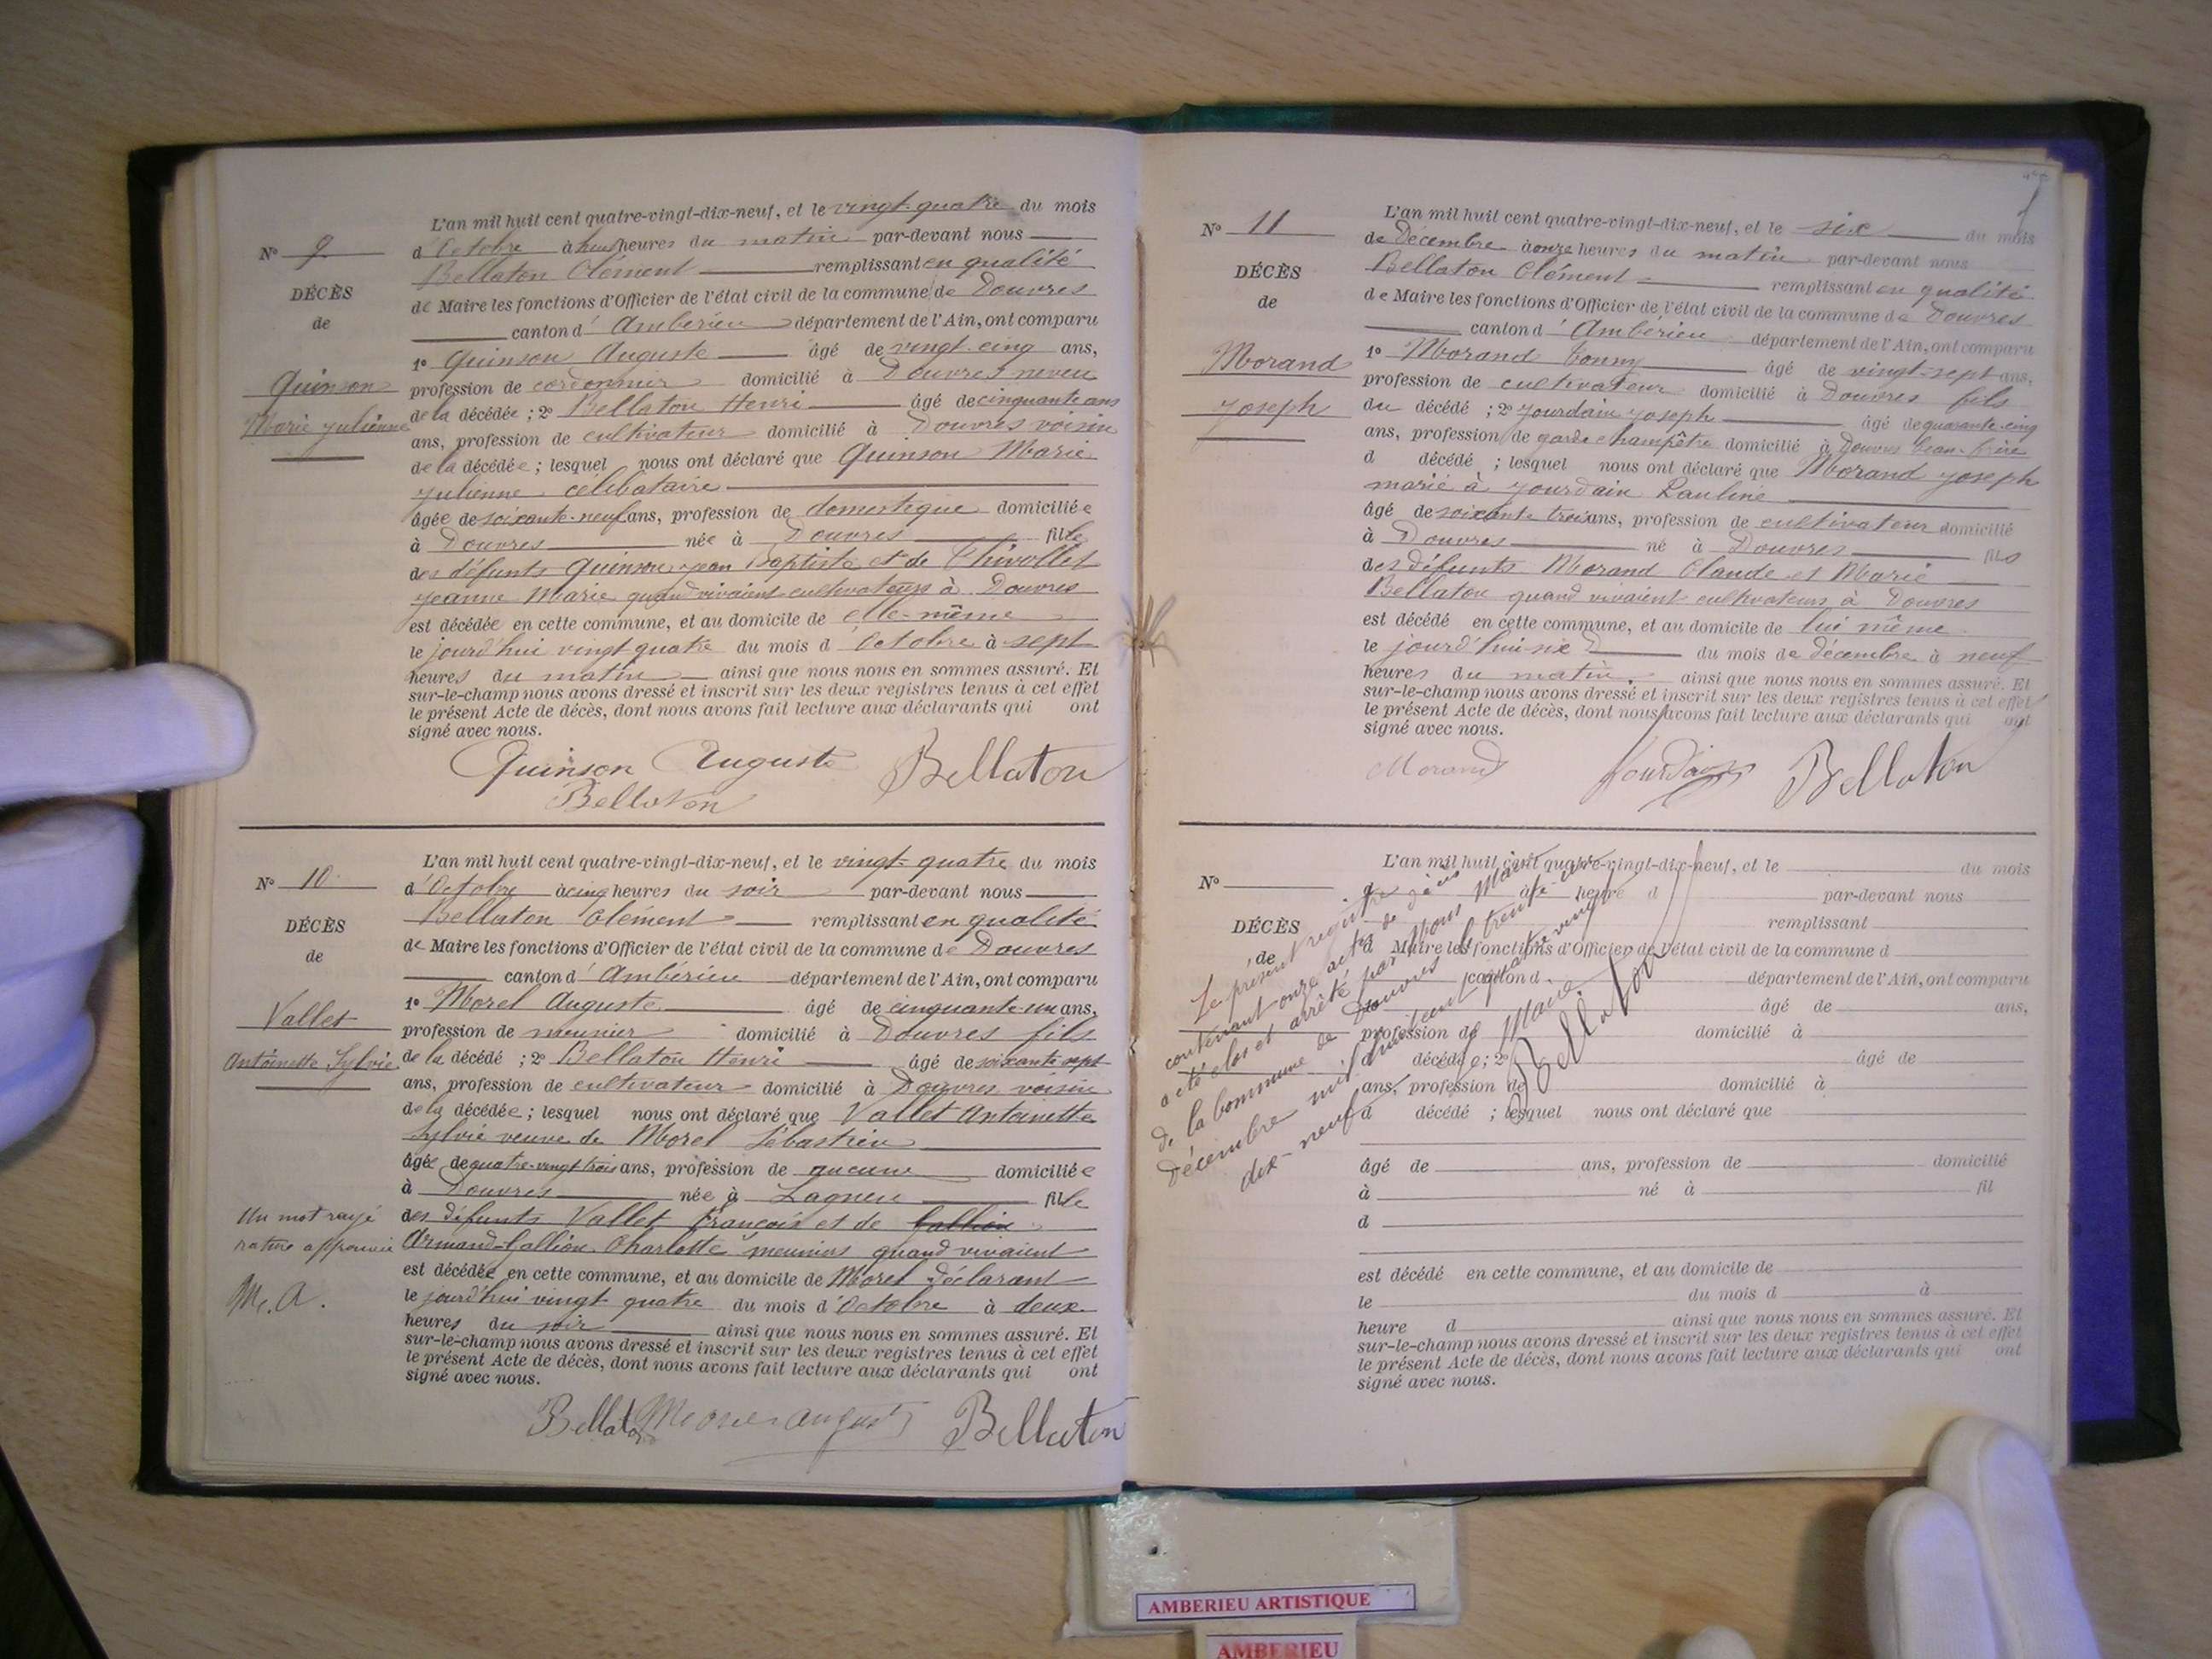 L'an mil huit cent quatre-vingt-dix-neuf, et le vingt-quatre du mois
N° 9
d'Octobre à heures du matin par-devant nous
Bellaton Clément remplissant en qualité
DÉCÈS
de Maire les fonctions d'Officier de l'état civil de la commune de Douvres
de
canton d'Ambérieu département de l'Ain, ont comparu
1° Quinson Auguste âgé de vingt-cinq ans,
Quinson
profession de cordonnier domicilié à Douvres neveu
Marie Julienne
de la décédée ; 2° Bellaton Henri âgé de cinquante ans
ans, profession de cultivateur domicilié à Douvres voisin
de la décédée ; lesquel nous ont déclaré que Quinson Marie
Julienne célibataire
âgée de soixante-neuf ans, profession de domestique domiciliée
à Douvres née à Douvres fille
des défunts Quinson Jean Baptiste et de Thivollet
Jeanne Marie quand vivaient cultivateurs à Douvres
est décédée en cette commune, et au domicile de elle-même
le jourd'hui vingt quatre du mois d'Octobre à sept
heures du matin ainsi que nous nous en sommes assuré. Et
sur-le-champ nous avons dressé et inscrit sur les deux registres tenus à cet effet
le présent Acte de décès, dont nous avons fait lecture aux déclarants qui ont
signé avec nous.
Quinson Auguste Bellaton
Bellaton
L'an mil huit cent quatre-vingt-dix-neuf, et le vingt-quatre du mois
N° 10
d'Octobre à cinq heures du soir par-devant nous
Bellaton Clément remplissant en qualité
DÉCÈS
de Maire les fonctions d'Officier de l'état civil de la commune de Douvres
de
canton d'Ambérieu département de l'Ain, ont comparu
1° Morel Auguste âgé de cinquante-un ans,
Vallet
profession de meunier domicilié à Douvres fils
Antoinette Sylvie
de la décédé ; 2° Bellaton Henri âgé de soixante sept
ans, profession de cultivateur domicilié à Douvres voisin
de la décédée ; lesquel nous ont déclaré que Vallet Antoinette
Sylvie veuve de Morel Sébastien
âgée de quatre-vingt trois ans, profession de aucune domiciliée
à Douvres née à Lagnieu fille
Un mot rayé
des défunts Vallet François et de Gallion
rature approuvée
Armand-Gallion Charlotte meuniers quand vivaient
est décédée en cette commune, et au domicile de Morel déclarant
M. A.
le jourd'hui vingt quatre du mois d'Octobre à deux
heures du soir ainsi que nous nous en sommes assuré. Et
sur-le-champ nous avons dressé et inscrit sur les deux registres tenus à cet effet
le présent Acte de décès, dont nous avons fait lecture aux déclarants qui ont
signé avec nous.
Bellaton Morel auguste Bellaton
L'an mil huit cent quatre-vingt-dix-neuf, et le six du mois
N° 11
de Décembre à onze heures du matin par-devant nous
Bellaton Clément remplissant en qualité
DÉCÈS
de Maire les fonctions d'Officier de l'état civil de la commune de Douvres
de
canton d'Ambérieu département de l'Ain, ont comparu
Morand
1° Morand âgé de vingt-sept ans,
profession de cultivateur domicilié à Douvres fils
Joseph
du décédé ; 2° Jourdain Joseph âgé de quarante-cinq
ans, profession de garde champêtre domicilié à Douvres beau-frère
d décédé ; lesquel nous ont déclaré que Morand Joseph
marié à Jourdain Pauline
âgé de soixante trois ans, profession de cultivateur domicilié
à Douvres né à Douvres fils
des défunts Morand Claude et Marie
Bellaton quand vivaient cultivateurs à Douvres
est décédé en cette commune, et au domicile de lui même
le jourd'hui six du mois de décembre à neuf
heures du matin. ainsi que nous nous en sommes assuré. Et
sur-le-champ nous avons dressé et inscrit sur les deux registres tenus à cet effet
le présent Acte de décès, dont nous avons fait lecture aux déclarants qui ont
signé avec nous.
Morand Jourdain Bellaton
L'an mil huit cent quatre-vingt-dix-neuf, et le du mois
N°
à heure d par-devant nous
remplissant
DÉCÈS
d Maire les fonctions d'Officier de l'état civil de la commune d
de
canton d département de l'Ain, ont comparu
1° âgé de ans,
profession de domicilié à
décédé ; 2° âgé de
ans, profession de domicilié à
d décédé ; lesquel nous ont déclaré que
âgé de ans, profession de domicilié
à né à fil
d
est décédé en cette commune, et au domicile de
le du mois d à
heure d ainsi que nous nous en sommes assuré. Et
sur-le-champ nous avons dressé et inscrit sur les deux registres tenus à cet effet
le présent Acte de décès, dont nous avons fait lecture aux déclarants qui ont
signé avec nous.
Le présent registre
contenant onze actes de décès
a été clos et arrêté par Nous Maire
de la Commune de Douvres le trente-un
Décembre mil huit cent quatre vingt
dix-neuf.
Maire
Bellaton
AMBERIEU ARTISTIQUE
AMBERIEU